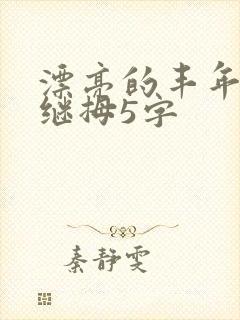 漂亮的丰年
继拇5字
秦静雯